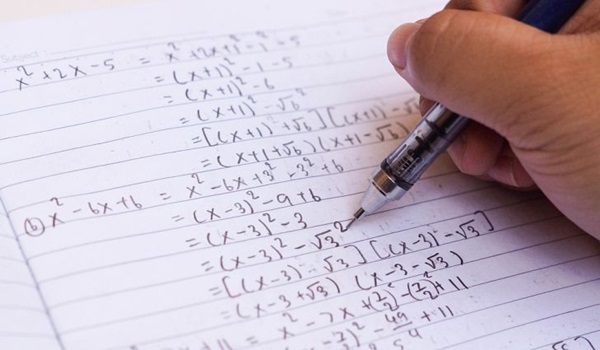 Subject
x² + 2x - 5 = x² + 2x + 1² - 1² - 5
= (x+1)² - 1 - 5
= (x+1)² - 6
= (x+1)² - √6²
= [(x+1) + √6] [(x+1) - √6
= (x+1+√6) (x+1-√6)
(b) x² - 6x + 6 = x² - 6x + 3² - 3² + 6
= (x-3)² - 9 + 6
= (x-3)² - 3
= (x-3)² - √3²
= [(x-3) + √3] [(x-3) - √3]
= (x-3+√3) (x-3-√3)
+ 11 = x² - 7x + (7/2)² - (7/2)² + 11
)² - 49/4 + 11